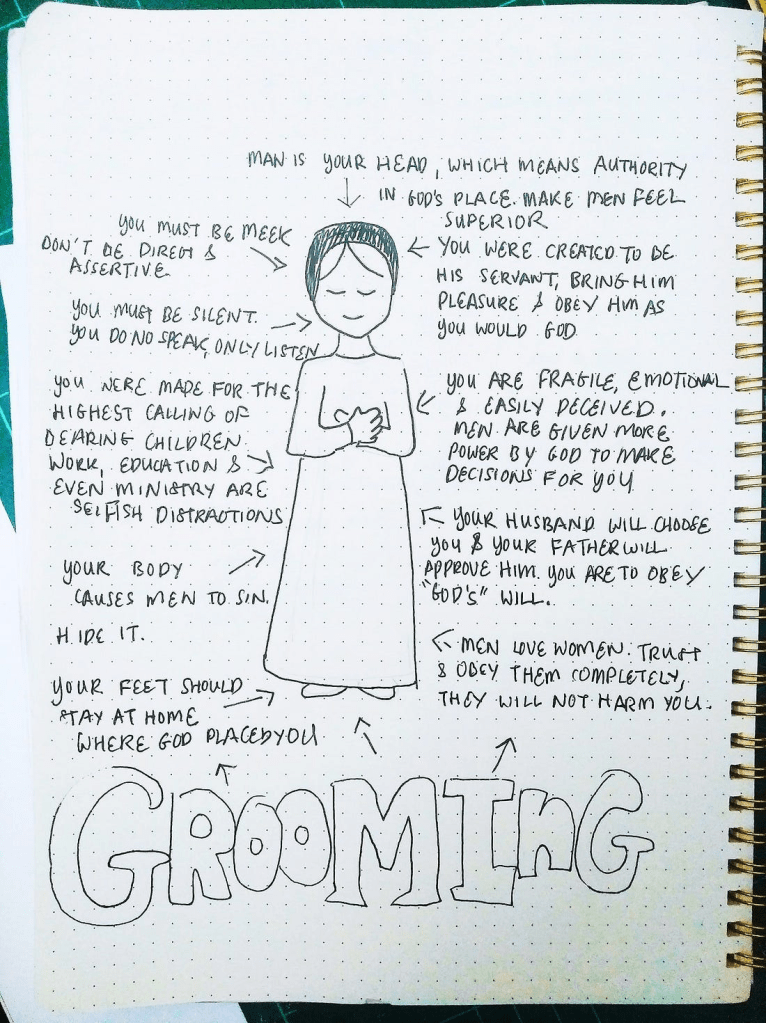 MAN IS YOUR HEAD, WHICH MEANS AUTHORITY
IN GOD'S PLACE. MAKE MEN FEEL
SUPERIOR
YOU MUST BE MEEK
DON'T BE DIRECT &
ASSERTIVE
YOU WERE CREATED TO BE
HIS SERVANT, BRING HIM
PLEASURE & OBEY HIM AS
YOU WOULD GOD
YOU MUST BE SILENT.
YOU DO NO SPEAK, ONLY LISTEN
YOU WERE MADE FOR THE
HIGHEST CALLING OF
BEARING CHILDREN.
WORK, EDUCATION &
EVEN MINISTRY ARE
SELFISH DISTRACTIONS
YOU ARE FRAGILE, EMOTIONAL
& EASILY DECEIVED.
MEN ARE GIVEN MORE
POWER BY GOD TO MAKE
DECISIONS FOR YOU
YOUR HUSBAND WILL CHOOSE
YOU & YOUR FATHER WILL
APPROVE HIM. YOU ARE TO OBEY
"GOD'S" WILL.
YOUR BODY
CAUSES MEN TO SIN.
HIDE IT.
MEN LOVE WOMEN. TRUST
& OBEY THEM COMPLETELY,
THEY WILL NOT HARM YOU.
YOUR FEET SHOULD
STAY AT HOME
WHERE GOD PLACED YOU
GROOMING